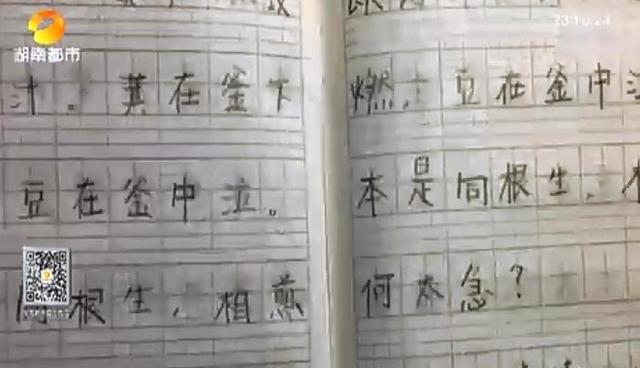 湖南都市
汁。萁在釜下燃，豆在釜中
豆在釜中泣。本是同根生，
同根生，相煎何太急？